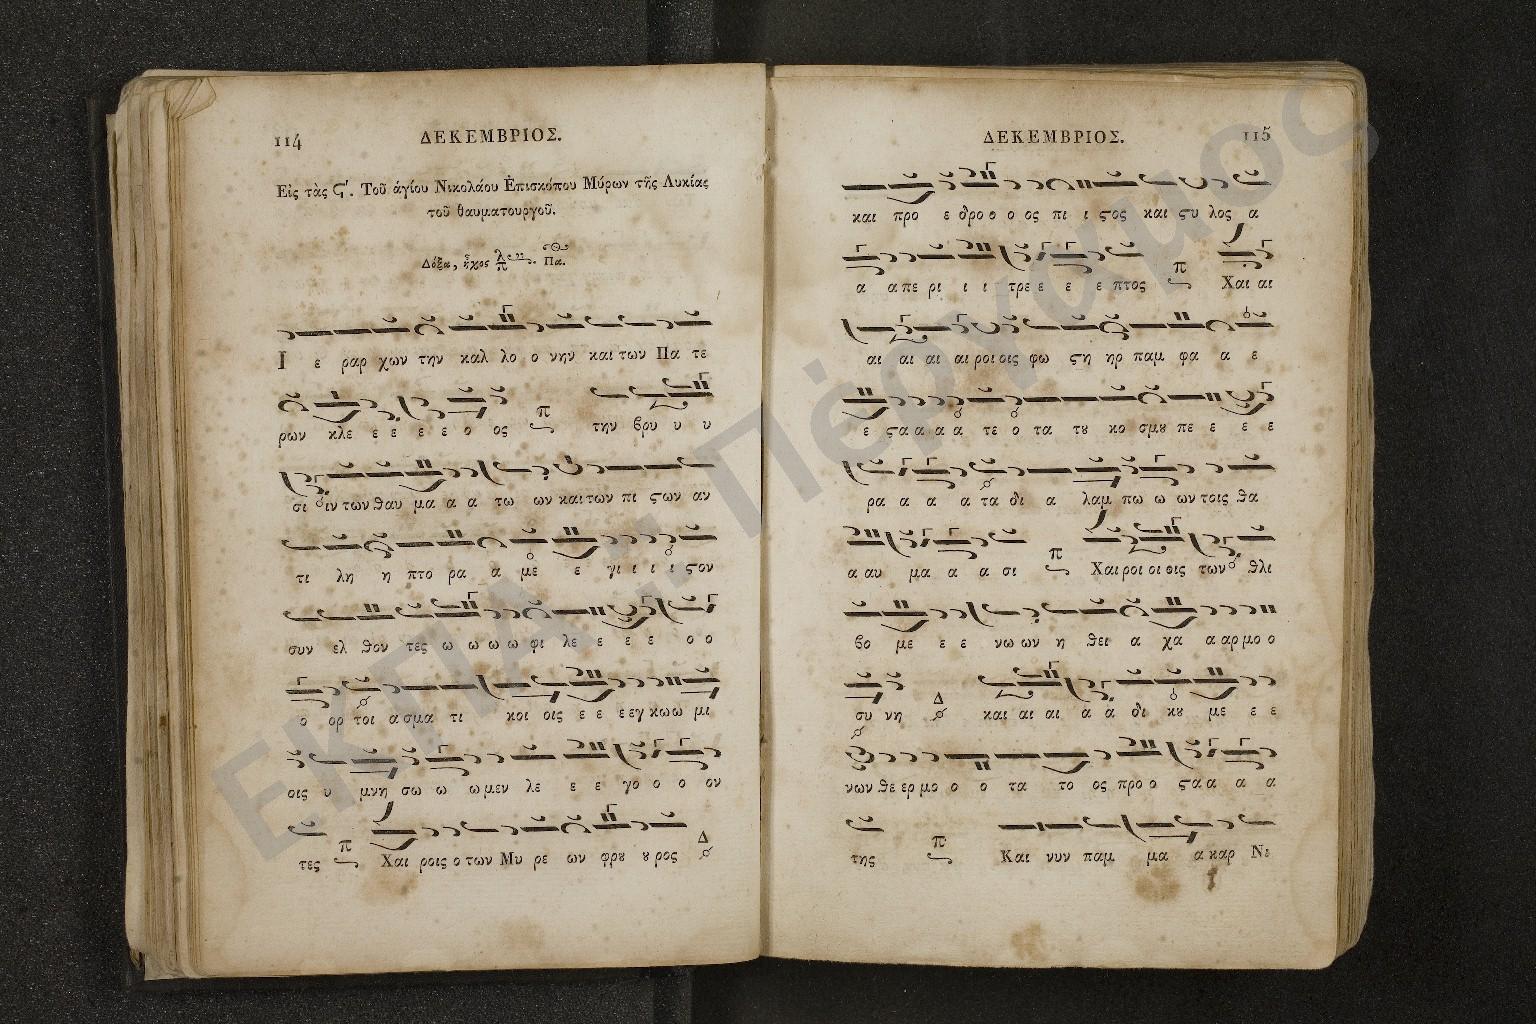 114
ΔΕΚΕΜΒΡΙΟΣ.
Εἰς τὰς Ϛ'. Τοῦ ἁγίου Νικολάου Ἐπισκόπου Μύρων τῆς Λυκίας
τοῦ θαυματουργοῦ.
Δόξα, ἦχος λ π Πα.
Ι ε ραρ χων την καλ λο ο νην και των Πα τε
ρων κλε ε ε ε ε ο ος π την βρυ υ υ
σι ιν των θαυ μα α α τω ων και των πι ϛων αν
τι λη η πτο ρα α με ε γι ι ι ι ϛον
συν ελ θον τες ω ω ω ω φι λε ε ε ε ο ο
ο ορ τοι α σμα τι κοι οις ε ε ε εγ κωω μι
οις υ μνη σω ω ω μεν λε ε ε γο ο ο ον
τες π Χαι ροις ο των Μυ ρε ων φρȣ ȣ ρος Δ
ΔΕΚΕΜΒΡΙΟΣ.
115
και προ ε δρο ο ο ος πι ι ϛος και ϛυ λος α
α α πε ρι ι ι τρε ε ε ε ε πτος π Χαι αι
αι αι αι αι ροι οις φω ϛη ηρ παμ φα α ε
ε ϛα α α α τε ο τα τȣ κο σμȣ πε ε ε ε
ρα α α α τα δι α λαμ πω ω ων τοις θα
α αυ μα α α σι π Χαι ροι οι οις των θλι
βο με ε ε νω ων η θει α χα α αρ μο ο
συ νη Δ και αι αι α α δι κȣ με ε ε
νων θε ερ μο ο ο τα το ος προ ο ϛα α α α
της π Και νυν παμ μα α καρ Νι
ΕΚΠΑ: Πέργαμος